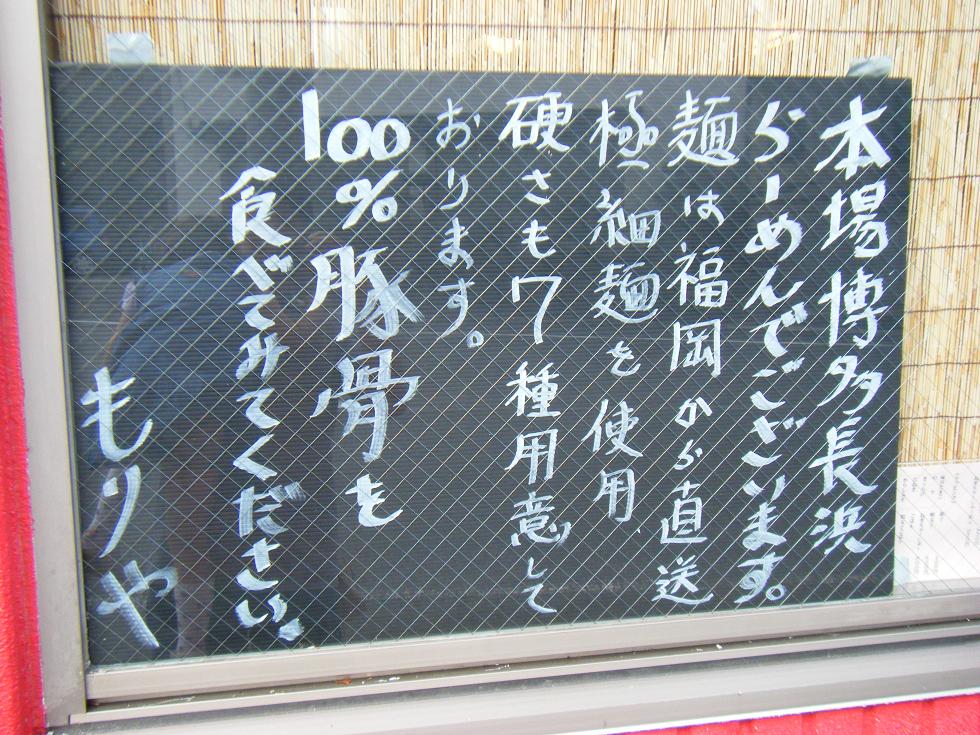 本場博多長浜
らーめんでございます。
麺は福岡から直送
極細麺を使用
硬さも7種用意して
おります。
100%豚骨を
食べてみてください。
もりや